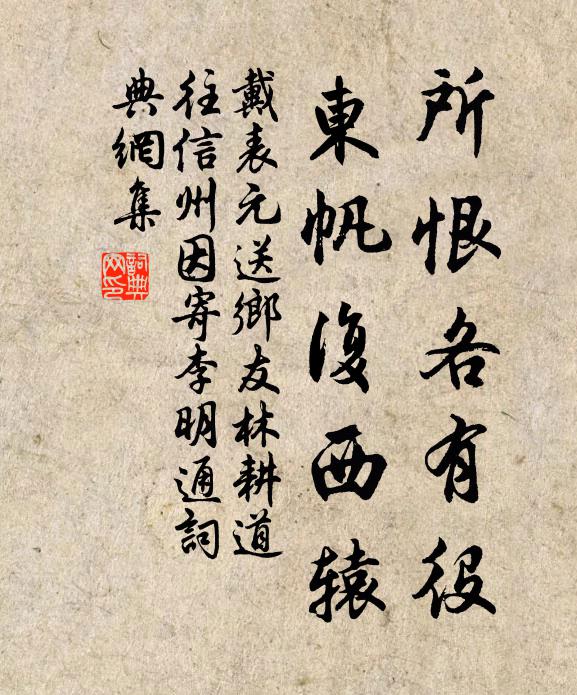 所恨各有役
東帆復西辕
戴表元送鄉友林耕道
往信州因寄李明通詞
典網集
詞典
网印